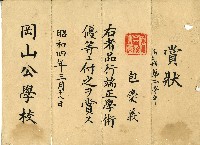 賞狀
包榮義
右者品行端正學術
優等ニ付之ヲ賞ス
昭和四年三月
岡山公學校